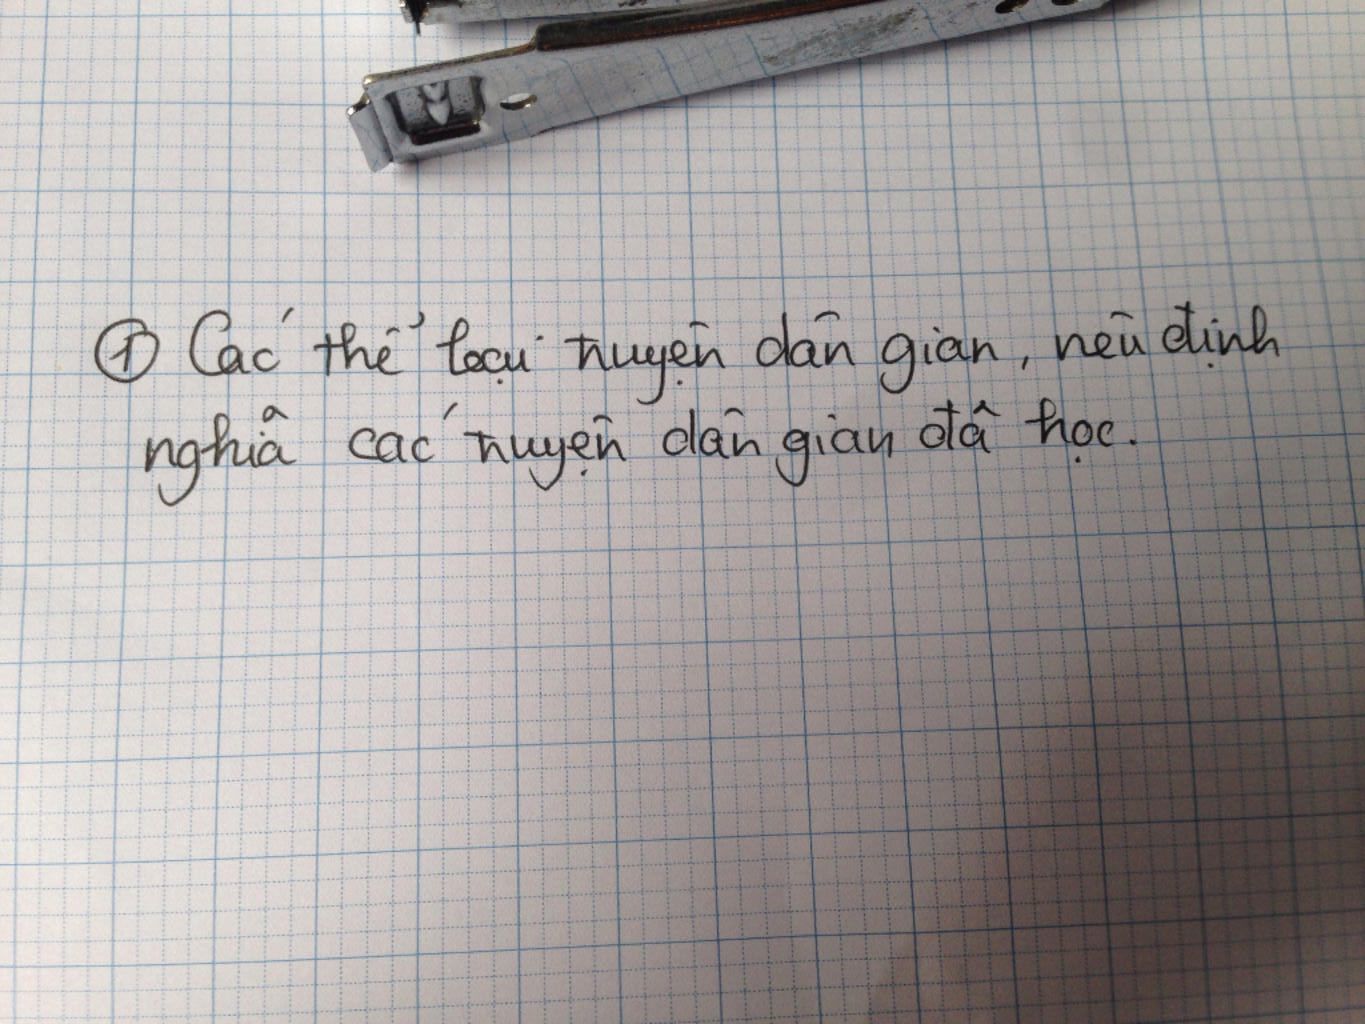 ① Các thể loại truyện dân gian, nêu định
nghĩa các truyện dân gian đã học.